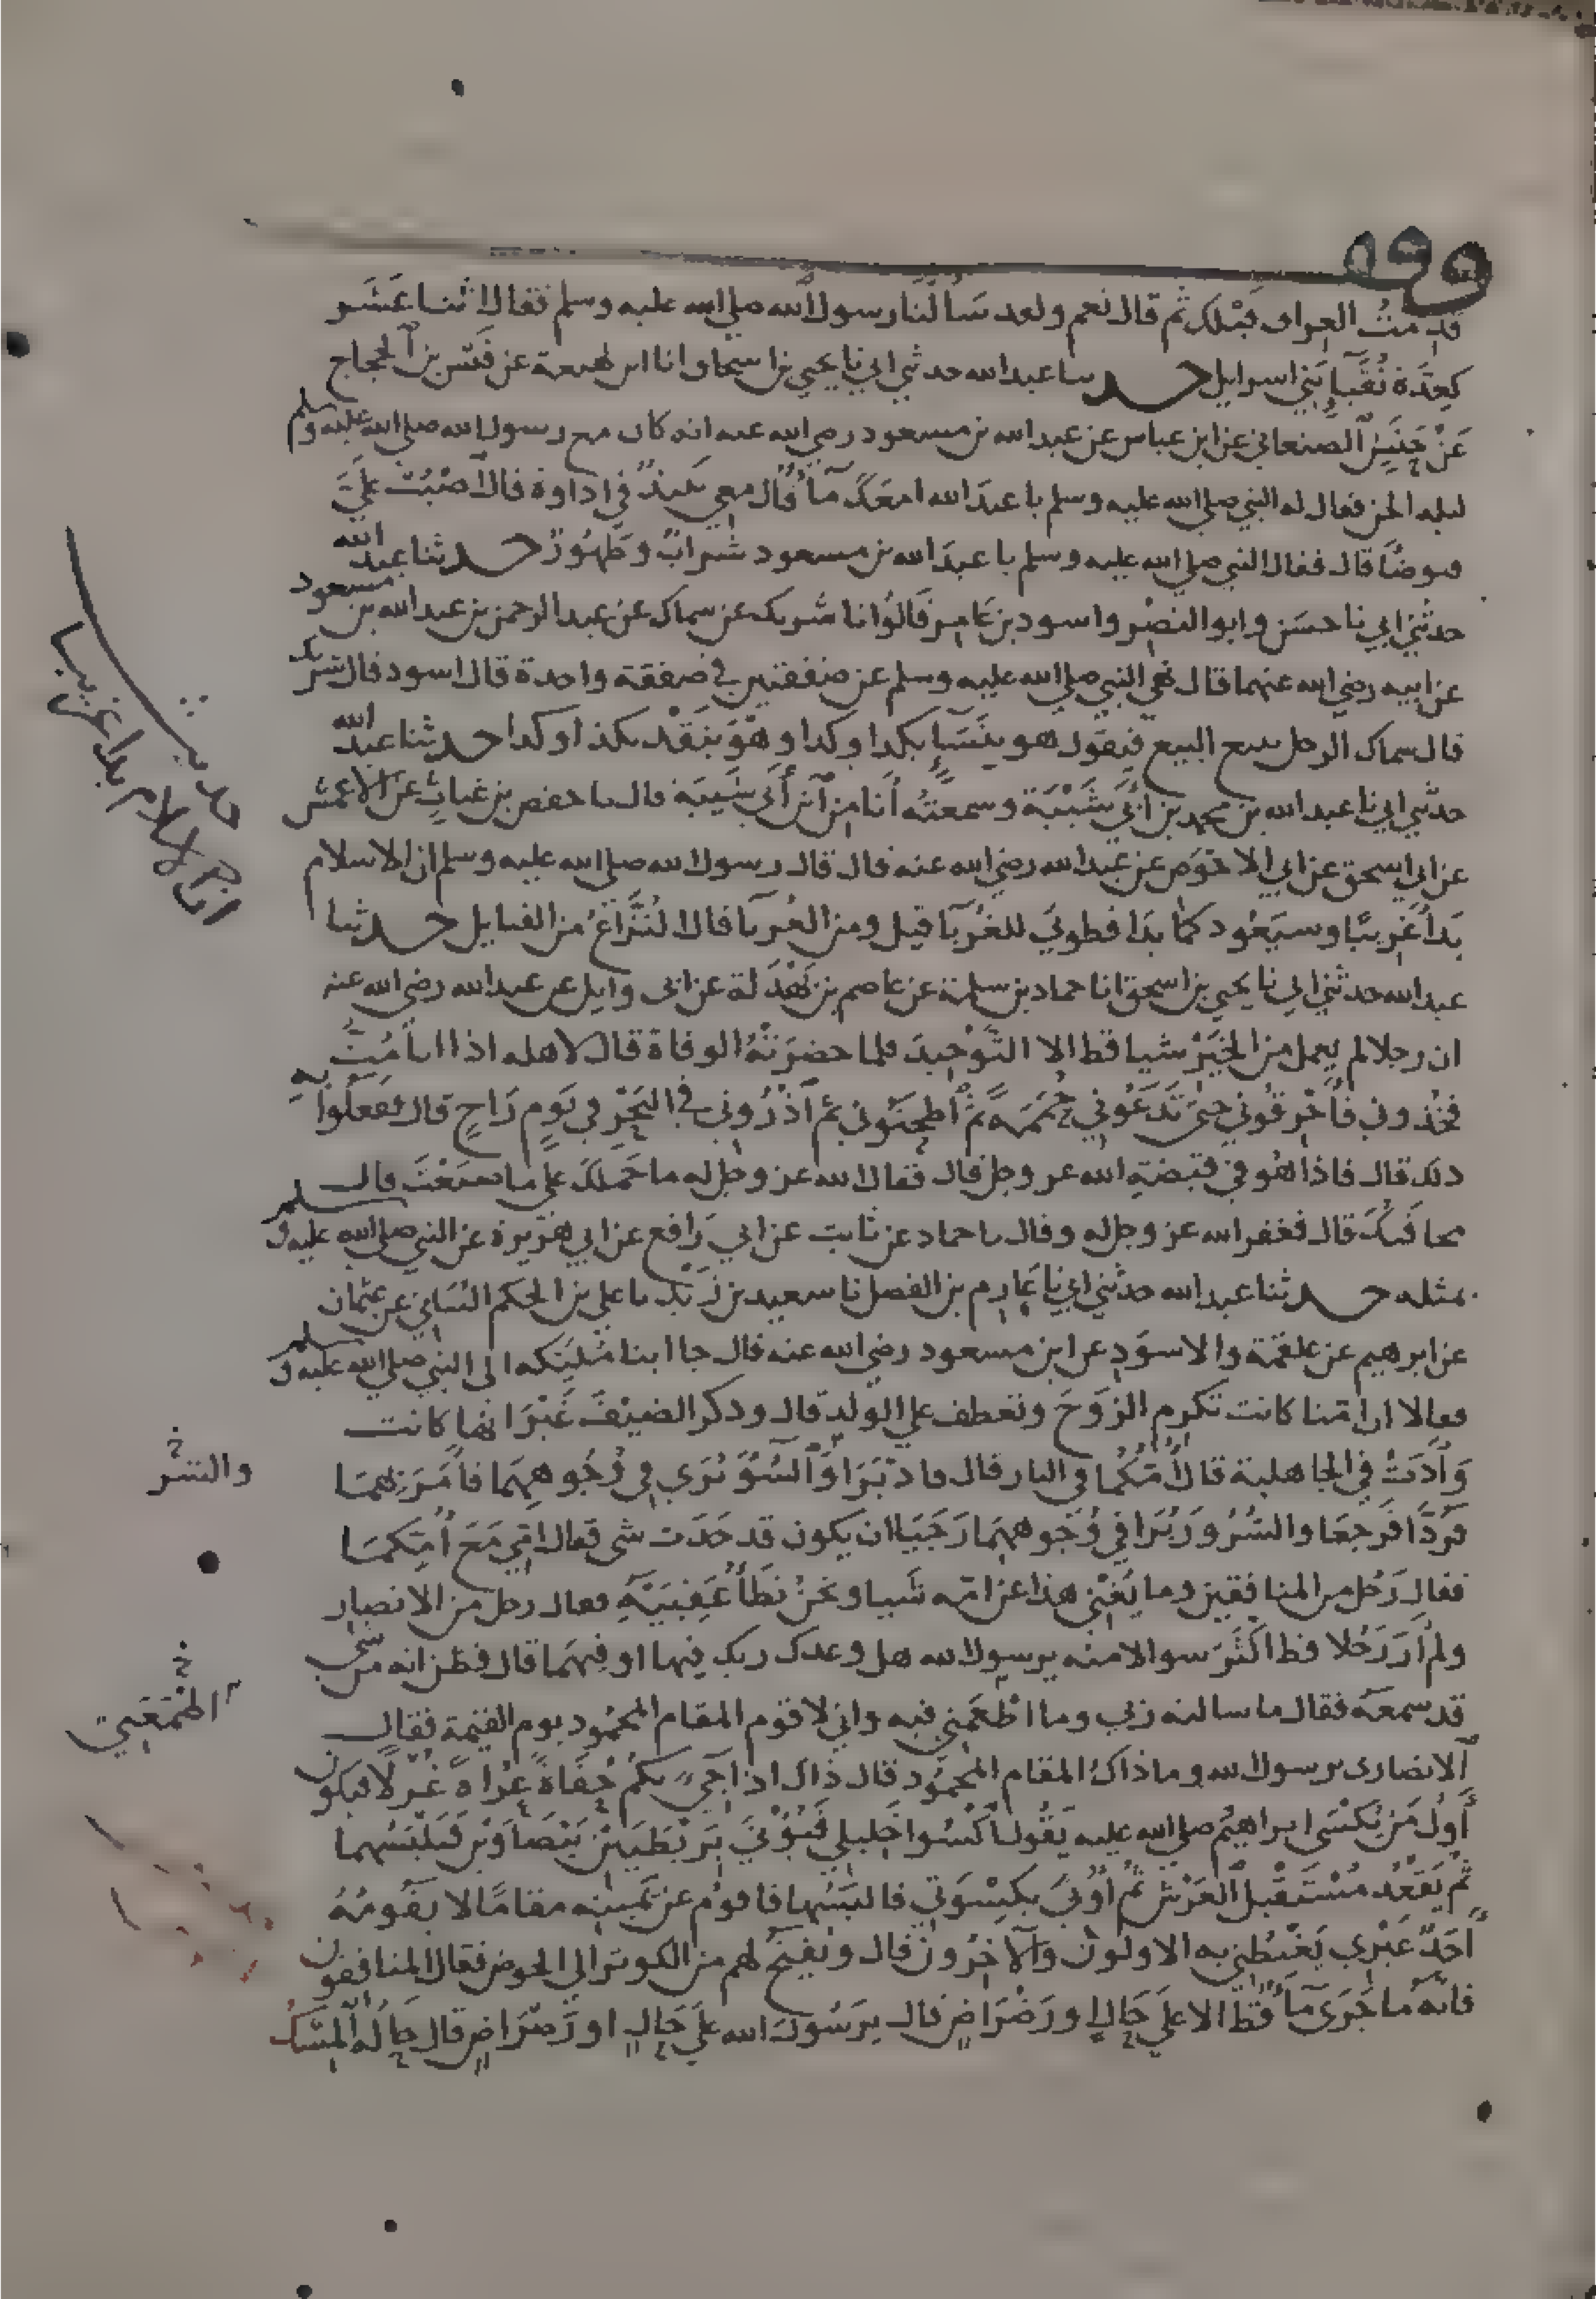 وقف
قدمت العراق قبلك ثم قال نعم ولقد سألنا رسول الله صلى الله عليه وسلم فقال اثنا عشر
كعدة نقبآء بني اسرايل حدثنا عبدالله حدثني ابي نا يحيي بن اسحاق انا ابن لهيعة عن قيس بن الحجاج
عن حنش الصنعاني عن ابن عباس عن عبدالله بن مسعود رضي الله عنه انه كان مع رسول الله صلى الله عليه وسلم
ليله الجن فقال له النبي صلى الله عليه وسلم يا عبد الله امعك مآء قال معي نبيذ في اداوة قال اصبب علي
فتوضأ قال فقال النبي صلى الله عليه وسلم يا عبد الله بن مسعود شراب وطهور حدثنا عبد الله
حدثني ابي نا حسن وابو النضر واسود بن عامر قالوا نا شريك عن سماك عن عبد الرحمن بن عبد الله بن مسعود
عن ابيه رضي الله عنهما قال نهى النبي صلى الله عليه وسلم عن صفقتين في صفقة واحدة قال اسود قال شريك
قال سماك الرجل يبيع البيع فيقول هو بنسآء بكذا وكذا وهو بنقد بكذا وكذا حدثنا عبد الله
حدثني ابي نا عبد الله بن محمد بن أبي شيبة وسمعته أنا من ابن أبي شيبة قال نا حفص بن غياث عن الاعمش
عن ابي اسحق عن ابي الاحوص عن عبد الله رضي الله عنه قال قال رسول الله صلى الله عليه وسلم ان الاسلام
بدأ غريبا وسيعود كما بدا فطوبي للغربآ قيل ومن الغربآ قال النزاع من القبايل حدثنا
عبدالله حدثني ابي نا يحيي بن اسحق انا حماد بن سلمة عن عاصم بن بهدلة عن ابي وايل عن عبد الله رضي الله عنه
ان رجلا لم يعمل من الخير شيا قط الا التوحيد فلما حضرته الوفاة قال لاهله اذا انا مت
فخذوني فأحرقوني حتى تدعوني حممة ثم اطحنوني ثم اذروني في البحر في يوم راح قال ففعلوا به
ذلك قال فاذا هو في قبضة الله عز وجل قال فقال الله عز وجل له ما حملك على ما صنعت قال
مخافتك قال فغفر الله عز وجل له وقال نا حماد عن ثابت عن ابي رافع عن ابي هريرة عن النبي صلى الله عليه وسلم
بمثله حدثنا عبد الله حدثني ابي نا عارم بن الفضل نا سعيد بن زيد نا علي بن الحكم البناني عن عثمان
عن ابرهيم عن علقمة والاسود عن ابن مسعود رضي الله عنه قال جا ابنا مليكه الى النبي صلى الله عليه وسلم
فقالا ان امنا كانت تكرم الزوج وتعطف علي الولد قال وذكر الضيف غير انها كانت
وأدت في الجاهلية قال أمكما في النار قال فادبرا والسوء يرى في وجوههما فأمر بهما
فردا فرجعا والسرور يرا في وجوههما رجيا ان يكون قد حدث شي فقال امي مع أمكما
فقال رجل من المنافقين وما يغني هذا عن امه شيا ونحن نطأ عقبيه فقال رجل من الانصار
ولم أر رجلا قط اكثر سوالا منه يرسول الله هل وعدك ربك فيها او فيهما قال فظن انه من شي
قد سمعه فقال ما سالته ربي وما اطعمني فيه واني لاقوم المقام المحمود يوم القيمة فقال
الانصارى يرسول الله وما ذاك المقام المحمود قال ذاك اذا جيء بكم حفاة عراة غرلا فيكون
أول من يكسى ابراهيم صلى الله عليه يقول اكسوا خليلي فيؤتى بريطتين بيضاوين فيلبسهما
ثم يقعد مستقبل العرش ثم أوتى بكسوتي فالبسها فاقوم عن يمينه مقاما لا يقومه
أحد غيري يغبطني به الاولون والآخرون قال ويفتح لهم من الكوثر الى الحوض فقال المنافقون
فانه ما جرى مآء قط الا على حال ورضراض قال يرسول الله على حال او رضراض قال حاله المسك
حديث
ان الاسلام بدا غريبا
والشر
خ
خ